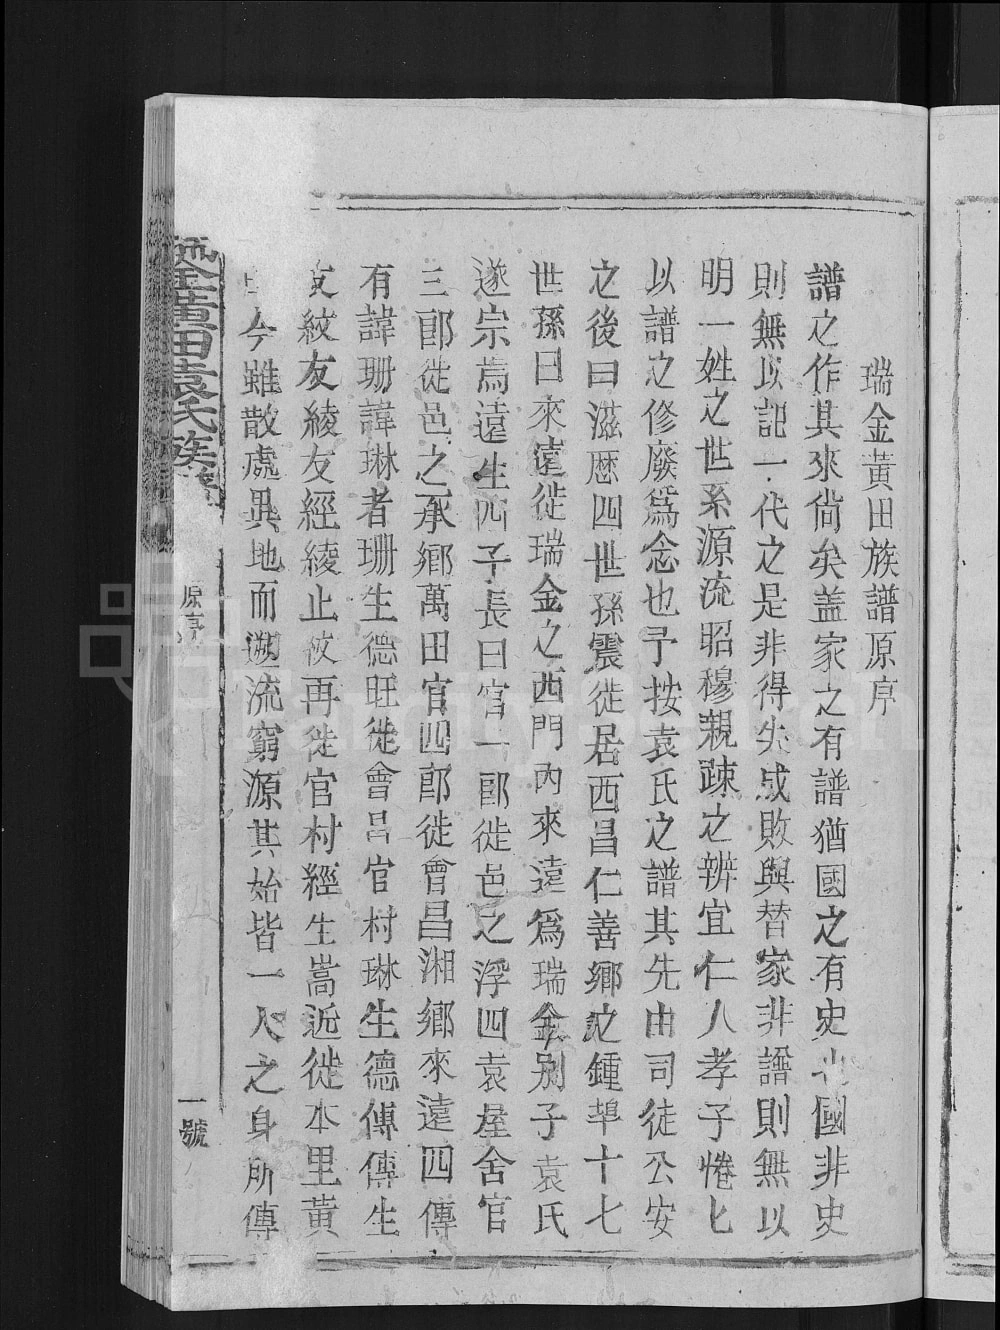 瑞金黃田族譜原序
譜之作其來尙矣盖家之有譜猶國之有史也國非史
則無以記一代之是非得失成敗與替家非譜則無以
明一姓之世系源流昭穆親疎之辨宜仁人孝子惓匕
以譜之修廢爲念也予按袁氏之譜其先由司徒公安
之後曰滋歷四世孫震徙居西昌仁善鄉之鍾犎十七
世孫曰來遠徙瑞金之西門內來遠爲瑞金別子袁氏
遂宗焉遠生四子長曰官一郎徙邑之浮四袁屋舍官
三郎徙邑之承鄉萬田官四郎徙會昌湘鄉來遠四傳
有諱珊諱琳者珊生德旺徙會昌官村琳生德傳傳生
友紋友綾友經綾止攱再徙官村經生嵩近徙本里黃
今雖散處異地而遡流窮源其始皆一人之身所傳
金黃田袁氏族譜
原序
一號